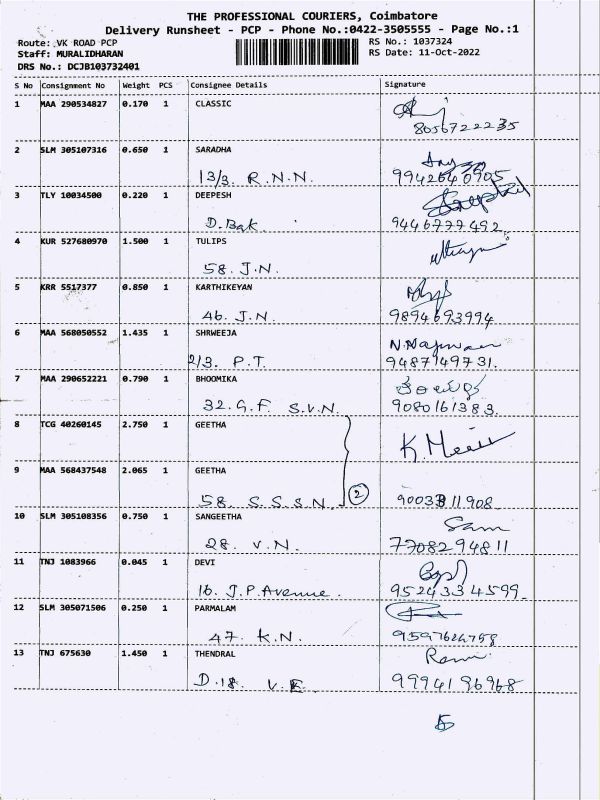 THE PROFESSIONAL COURIERS, Coimbatore
Delivery Runsheet - PCP - Phone No.:0422-3505555 - Page No.:1
Route: VK ROAD PCP RS No.: 1037324
Staff: MURALIDHARAN RS Date: 11-Oct-2022
DRS No.: DCJB103732401
S No Consignment No Weight PCS Consignee Details Signature
1 MAA 290534827 0.170 1 CLASSIC
8056722235
2 SLM 305107316 0.650 1 SARADHA
13/3. R.N.N. 9942640905
3 TLY 10034500 0.220 1 DEEPESH
D.Bak. 9446777492
4 KUR 527680970 1.500 1 TULIPS
58. J.N.
5 KRR 5517377 0.850 1 KARTHIKEYAN
46. J.N. 9894693994
6 MAA 568050552 1.435 1 SHRWEEJA
2/3. P.T. 9487149731.
7 MAA 290652221 0.790 1 BHOOMIKA
32. G.F S.V.N. 9080161383.
8 TCG 40260145 2.750 1 GEETHA
9 MAA 568437548 2.065 1 GEETHA
58. S.S.S.N. 2 9003311908
10 SLM 305108356 0.750 1 SANGEETHA Sam
28. V.N. 7708294811
11 TNJ 1083966 0.045 1 DEVI
16. J.P.Avenue. 9524334599.
12 SLM 305071506 0.250 1 PARMALAM
47. K.N. 9597624759
13 TNJ 675630 1.450 1 THENDRAL
D.18. V.E. 9994196968